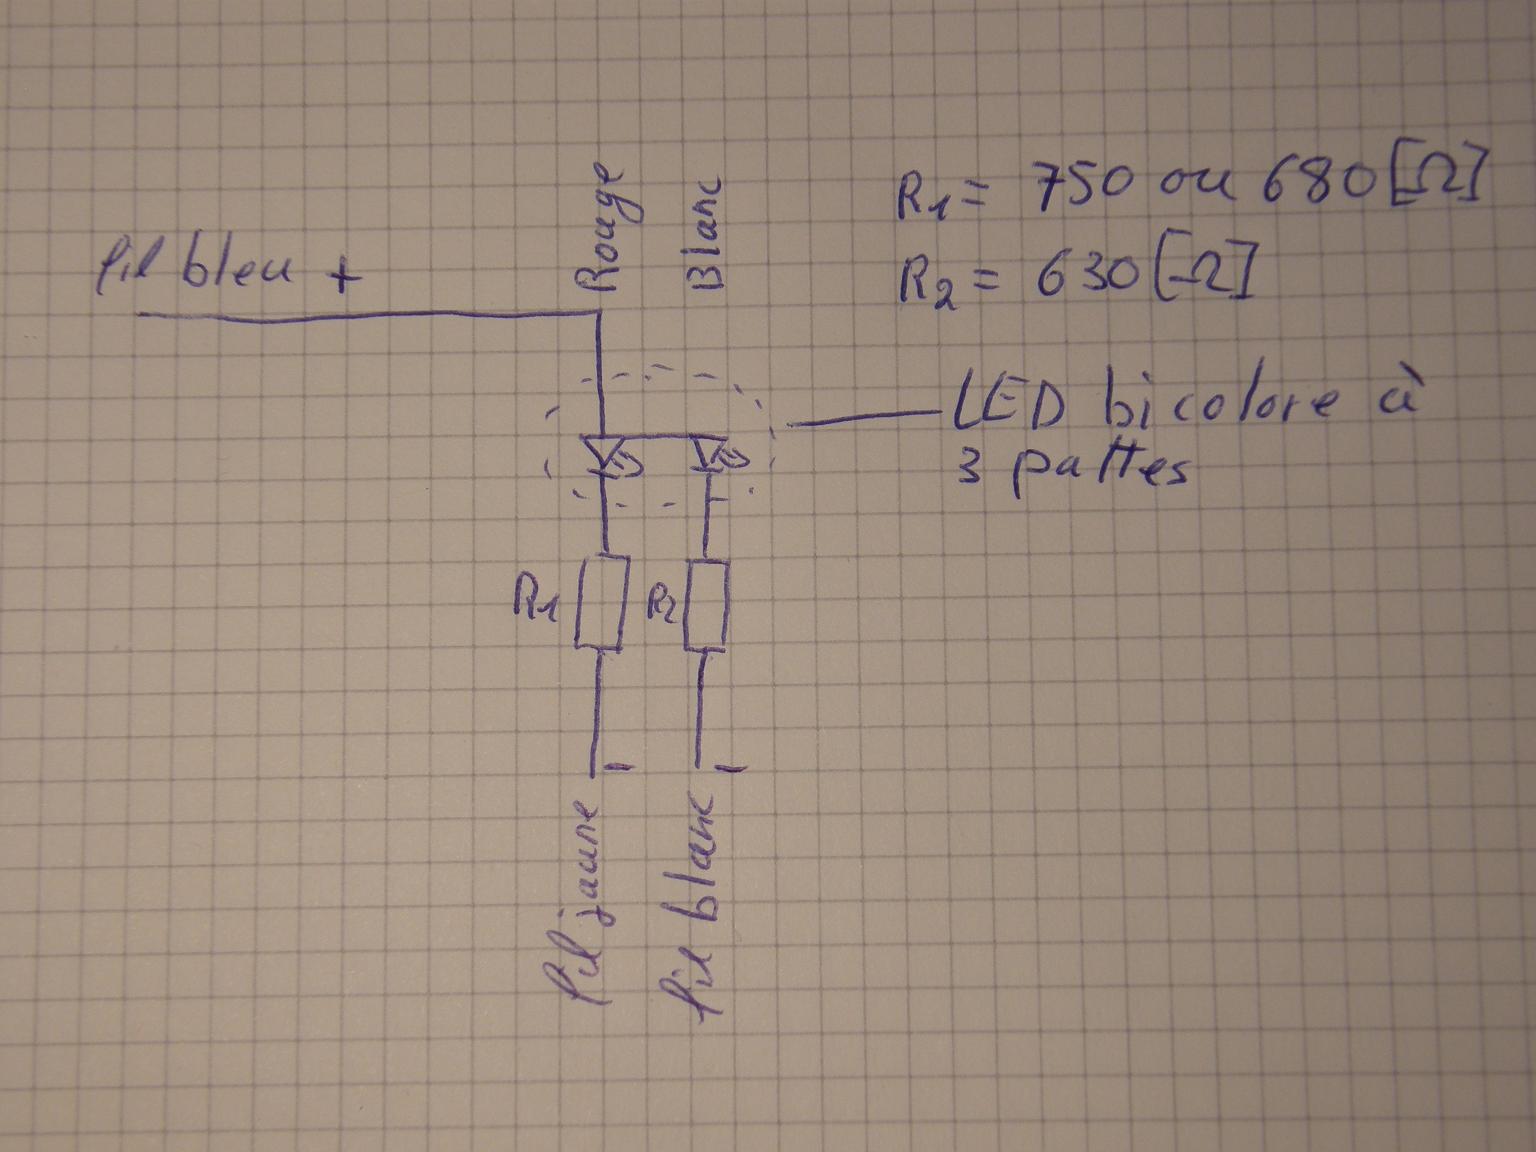 fil bleu +
Rouge
Blanc
R1 = 750 ou 680 [Ω]
R2 = 630 [Ω]
LED bicolore à
3 pattes
R1
R2
fil jaune -
fil blanc -